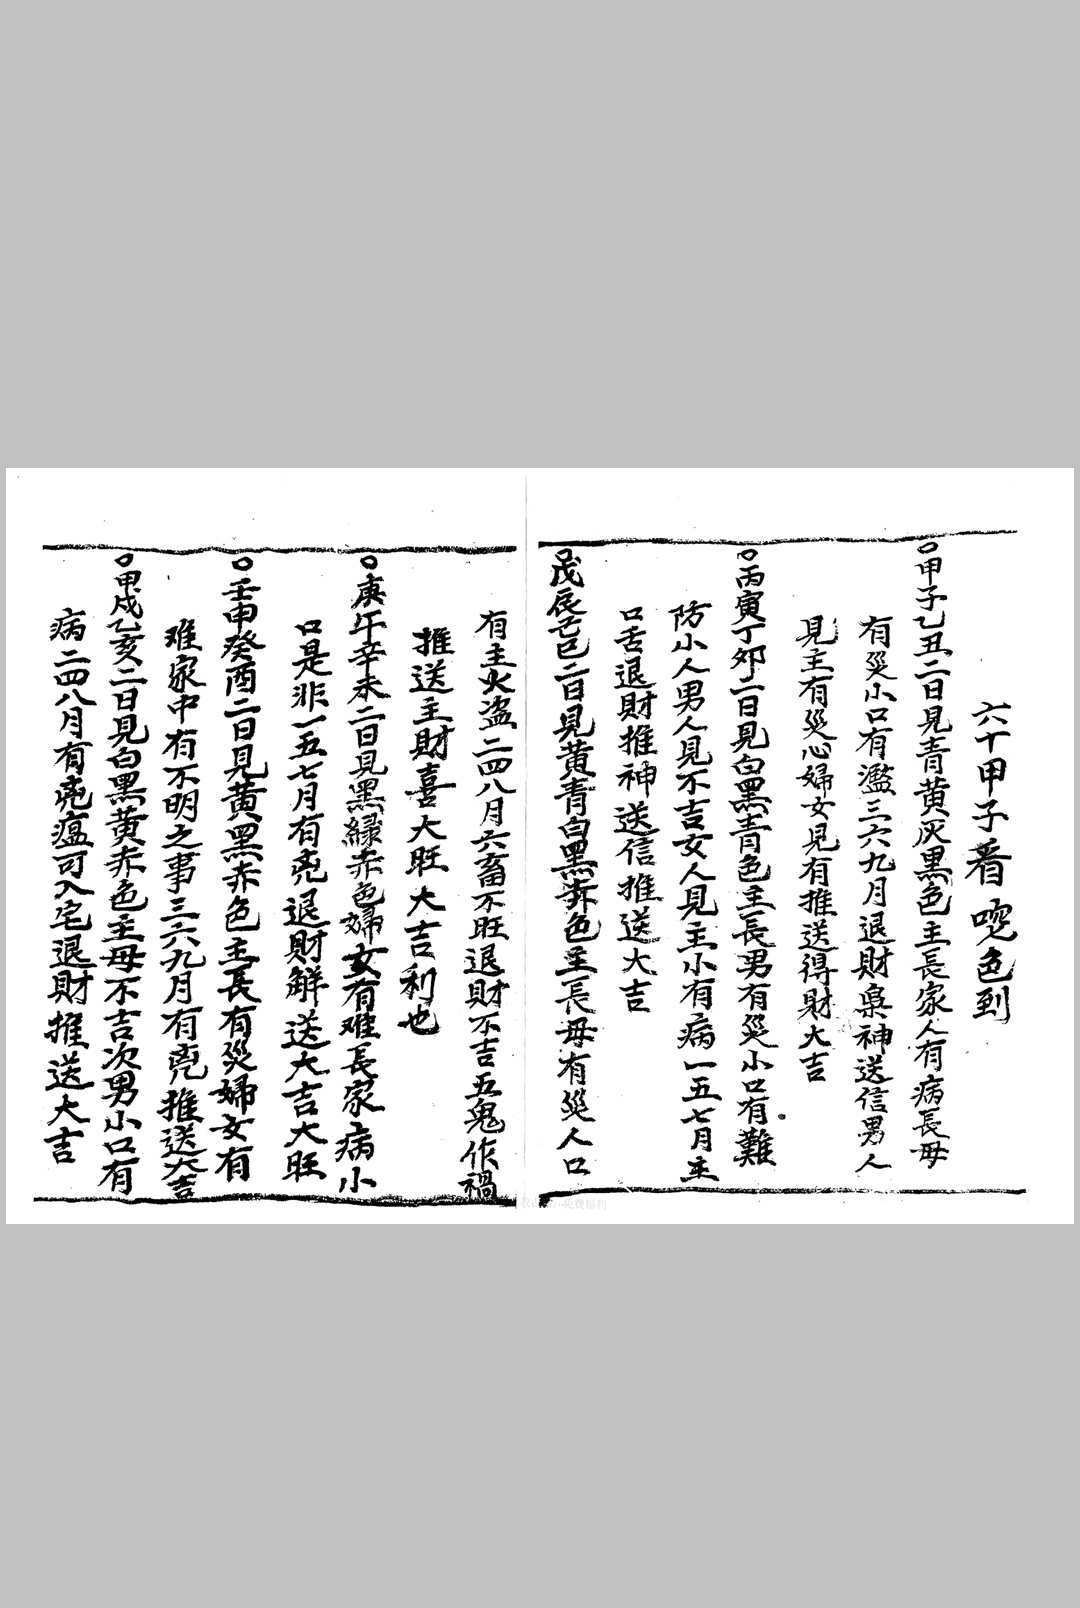 六十甲子看㖠色到
○甲子乙丑二日見青黄灰黑色主長家人有病長母
有災小口有濫三六九月退財梟神送信男人
見主有災心婦女見有推送得財大吉
○丙寅丁卯二日見白黑青色主長男有災小口有難
防小人男人見不吉女人見主小有病一五七月主
口舌退財推神送信推送大吉
○戊辰己巳二日見黄青白黑赤色主長母有災人口
有主火盗二四八月六畜不旺退財不吉五鬼作禍
推送主財喜大旺大吉利也
○庚午辛未二日見黑緑赤色婦女有难長家病小
口是非一五七月有退財解送大吉大旺
○壬申癸酉二日見黄黑赤色主長有災婦女有
难家中有不明之事三六九月有推送大吉
○甲戌乙亥二日見白黑黄赤色主母不吉次男小口有
病二四八月有瘟可入宅退財推送大吉